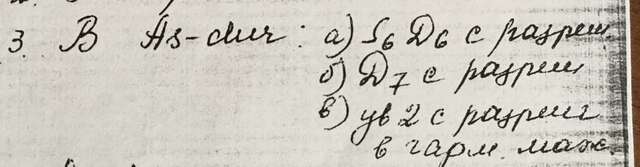 3. В As-dur: а) S6 Д6 с разреш.
б) Д7 с разреш
в) ув 2 с разреш
в гарм. маж